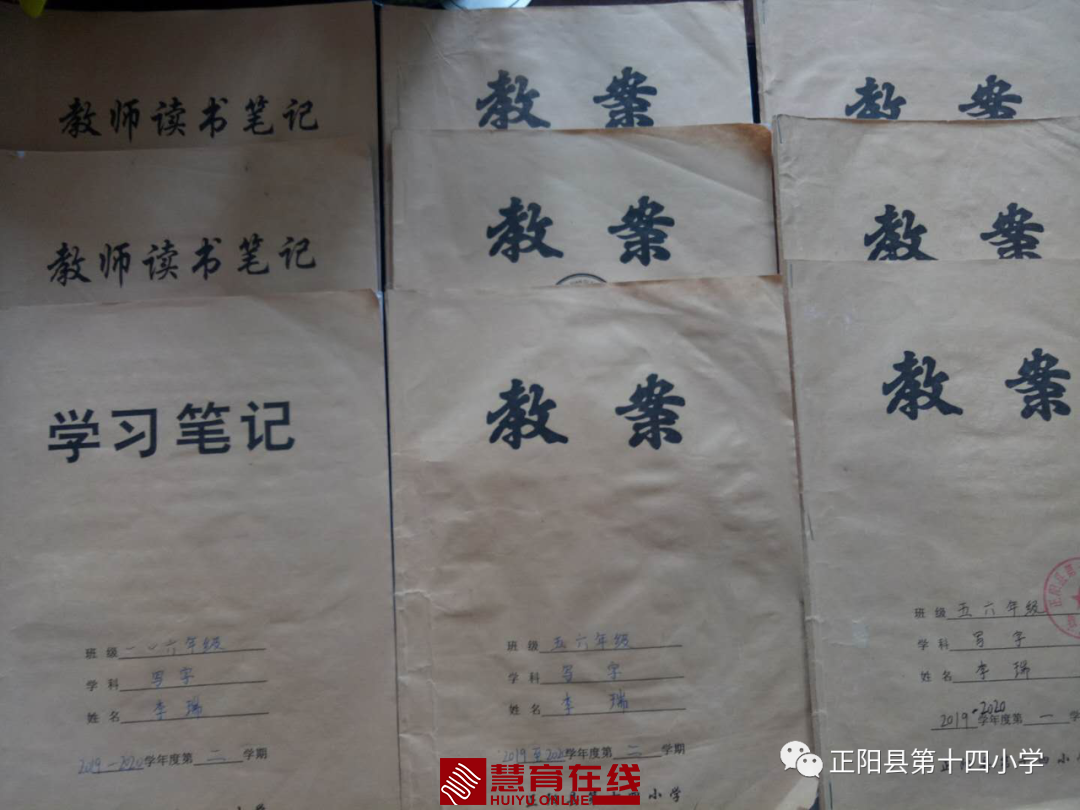 教师读书笔记
教师读书笔记
学习笔记
班 级 一一六年级
学科 写字
姓名 李瑞
2019-2020学年度第二学期
教 案
教 案
教 案
班 级 五六年级
学科 写字
姓名 李瑞
2019至2020学年度第二学期
小学
教 案
教 案
教 案
班 级 五六年级
学科 写字
姓名 李瑞
2019-2020学年度第一学
慧育在线
HUIYU ONLINE
正阳县第十四小学